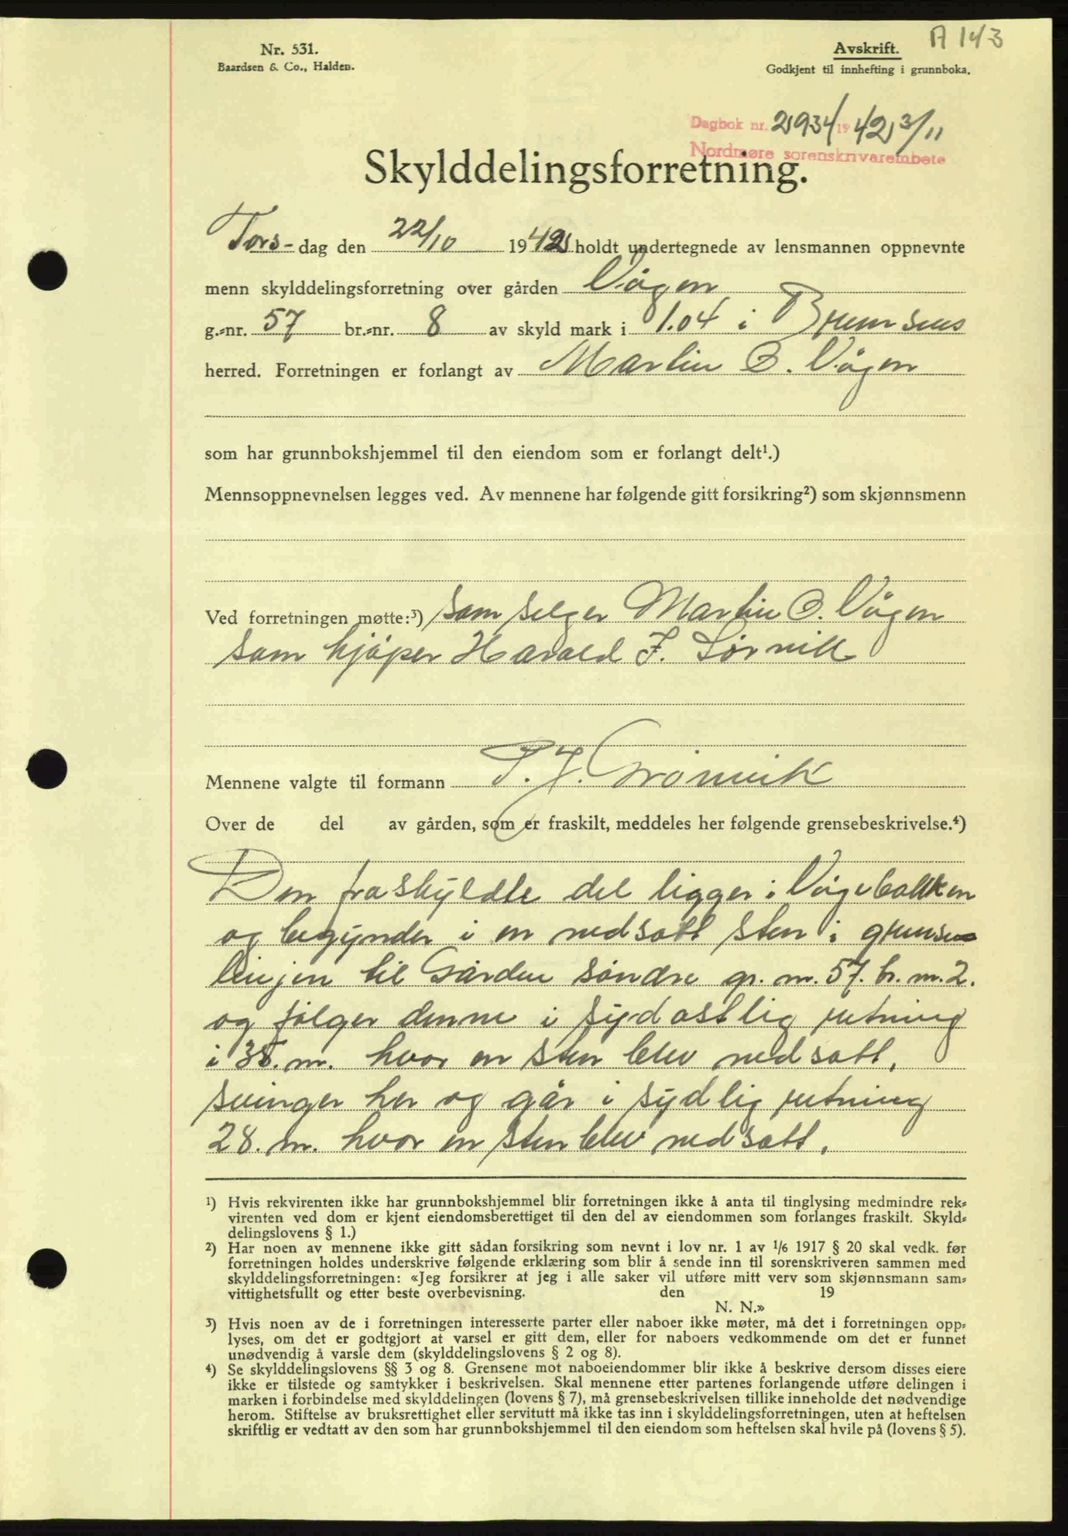 A 143
Nr. 531.
Baardsen & Co., Halden.
Avskrift.
Godkjent til innhefting i grunnboka.
Dagbok nr. 2934/1942, 3/11
Nordmøre sorenskriverembete
Skylddelingsforretning.
Tors-dag den 22/10 1942 holdt undertegnede av lensmannen oppnevnte
menn skylddelingsforretning over gården Vågen
g.-nr. 57 br.-nr. 8 av skyld mark i 1.04 i Bremsnes
herred. Forretningen er forlangt av Martin O. Vågen
som har grunnbokshjemmel til den eiendom som er forlangt delt¹.)
Mennsoppnevnelsen legges ved. Av mennene har følgende gitt forsikring²) som skjønnsmenn
Ved forretningen møtte:³) som selger Martin O. Vågen
som kjøper Harald F. Sørvik
Mennene valgte til formann P. J. Grønvik
Over de del av gården, som er fraskilt, meddeles her følgende grensebeskrivelse.⁴)
Den fraskyldte del ligger i Vågebakken
og begynder i en nedsatt sten i grense
linjen til Gården søndre gr. nr. 57. br. nr. 2.
og følger denne i sydøstlig retning
i 38. m. hvor en sten blev nedsatt,
svinger her og går i sydlig retning
28. m. hvor en sten blev nedsatt,
¹) Hvis rekvirenten ikke har grunnbokshjemmel blir forretningen ikke å anta til tinglysing medmindre rek-
virenten ved dom er kjent eiendomsberettiget til den del av eiendommen som forlanges fraskilt. Skyld-
delingslovens § 1.)
²) Har noen av mennene ikke gitt sådan forsikring som nevnt i lov nr. 1 av 1/6 1917 § 20 skal vedk. før
forretningen holdes underskrive følgende erklæring som blir å sende inn til sorenskriveren sammen med
skylddelingsforretningen: «Jeg forsikrer at jeg i alle saker vil utføre mitt verv som skjønnsmann sam-
vittighetsfullt og etter beste overbevisning. den 19
N. N.»
³) Hvis noen av de i forretningen interesserte parter eller naboer ikke møter, må det i forretningen opp-
lyses, om det er godtgjort at varsel er gitt dem, eller for naboers vedkommende om det er funnet
unødvendig å varsle dem (skylddelingslovens § 2 og 8).
⁴) Se skylddelingslovens §§ 3 og 8. Grensene mot naboeiendommer blir ikke å beskrive dersom disses eiere
ikke er tilstede og samtykker i beskrivelsen. Skal mennene etter partenes forlangende utføre delingen i
marken i forbindelse med skylddelingen (lovens § 7), må grensebeskrivelsen tillike inneholde det nødvendige
herom. Stiftelse av bruksrettighet eller servitutt må ikke tas inn i skylddelingsforretningen, uten at heftelsen
skriftlig er vedtatt av den som har grunnbokshjemmel til den eiendom som heftelsen skal hvile på (lovens § 5).